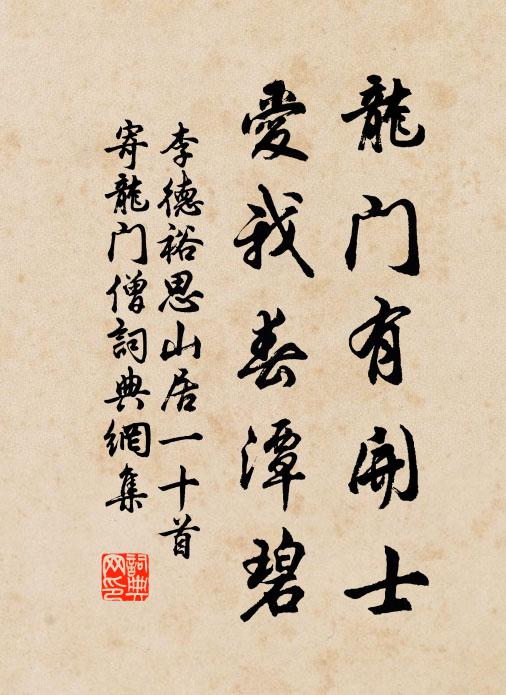 龍门有開士
愛我春潭碧
李德裕思山居一十首
寄龍门僧詞典網集
詞典
网印